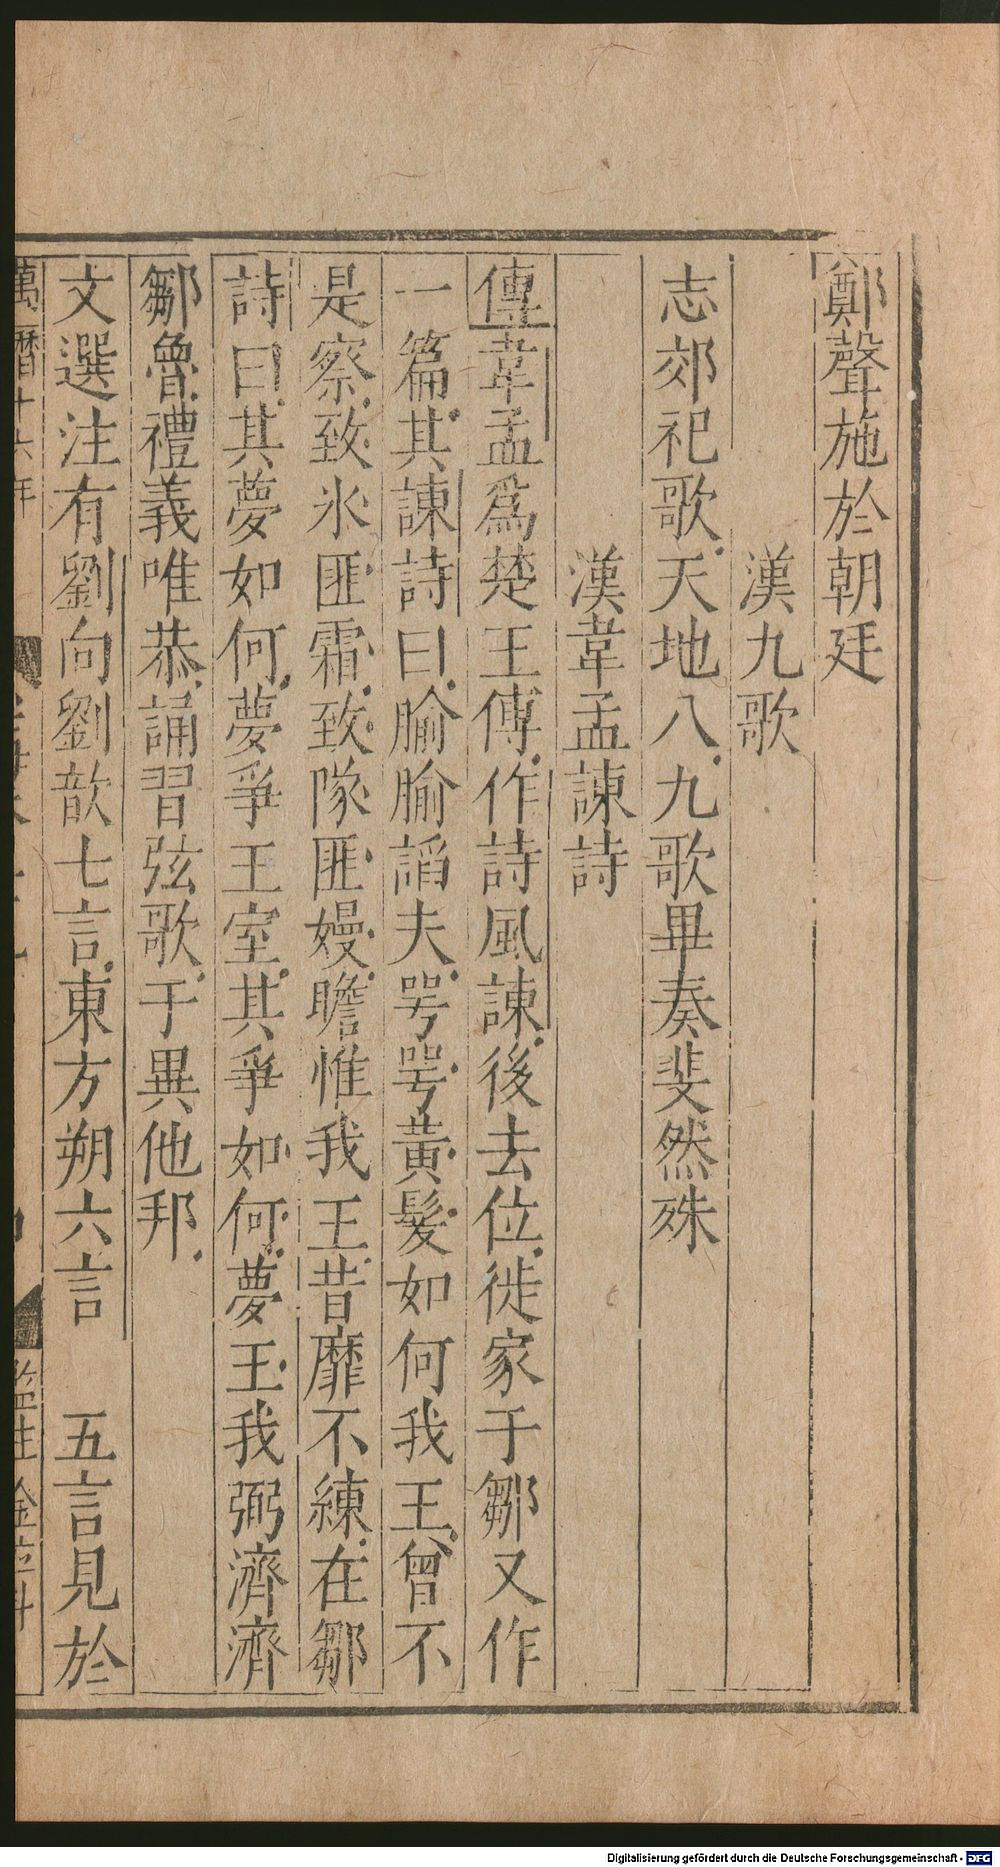 鄭聲施於朝廷
漢九歌
志郊祀歌天地八九歌畢奏斐然殊
漢韋孟諫詩
傳韋孟爲楚王傅作詩風諫後去位徙家于鄒又作
一篇其諫詩曰腧腧謟夫咢咢黃髮如何我王曾不
是察致氷匪霜致隊匪嫚瞻惟我王昔靡不練在鄒
詩曰其夢如何夢爭王室其爭如何夢王我弼濟濟
鄒魯禮義唯恭誦習弦歌于異他邦
文選注有劉向劉歆七言東方朔六言 五言見於
萬曆十六年
Digitalisierung gefördert durch die Deutsche Forschungsgemeinschaft - DFG